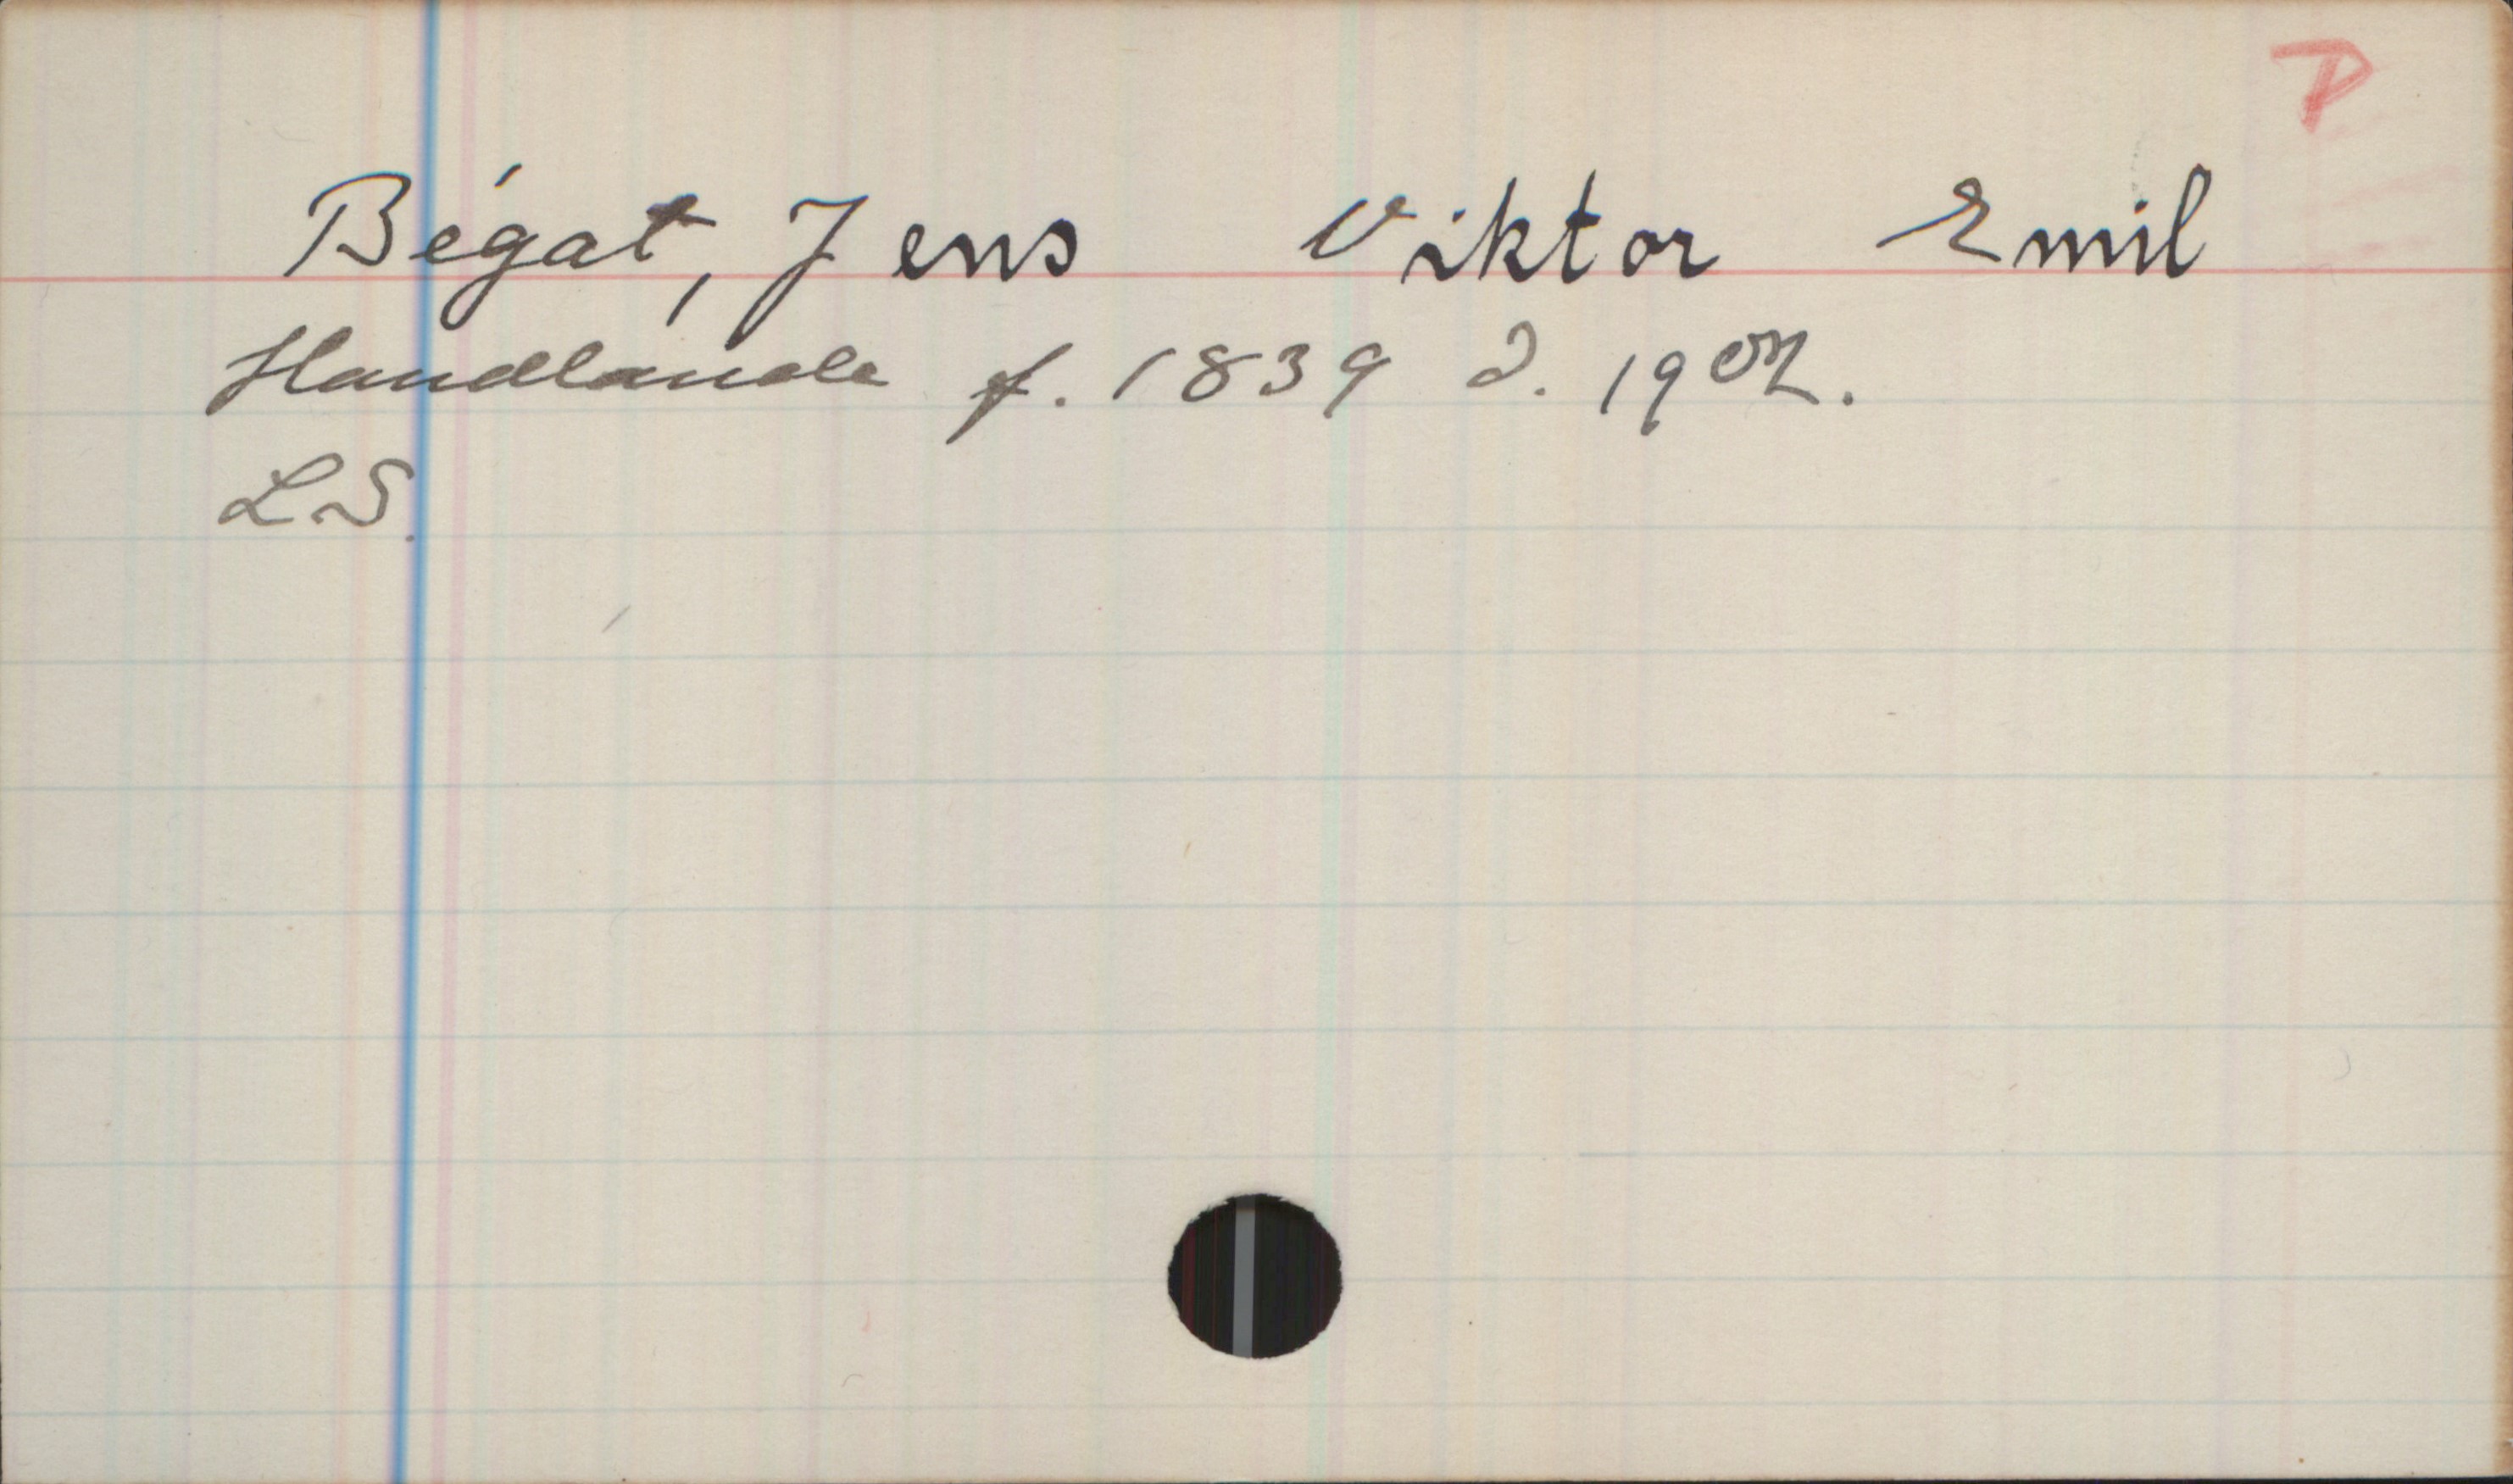 P
Bégat, Jens Viktor Emil
Handlande f. 1839 d. 1902.
L.S.